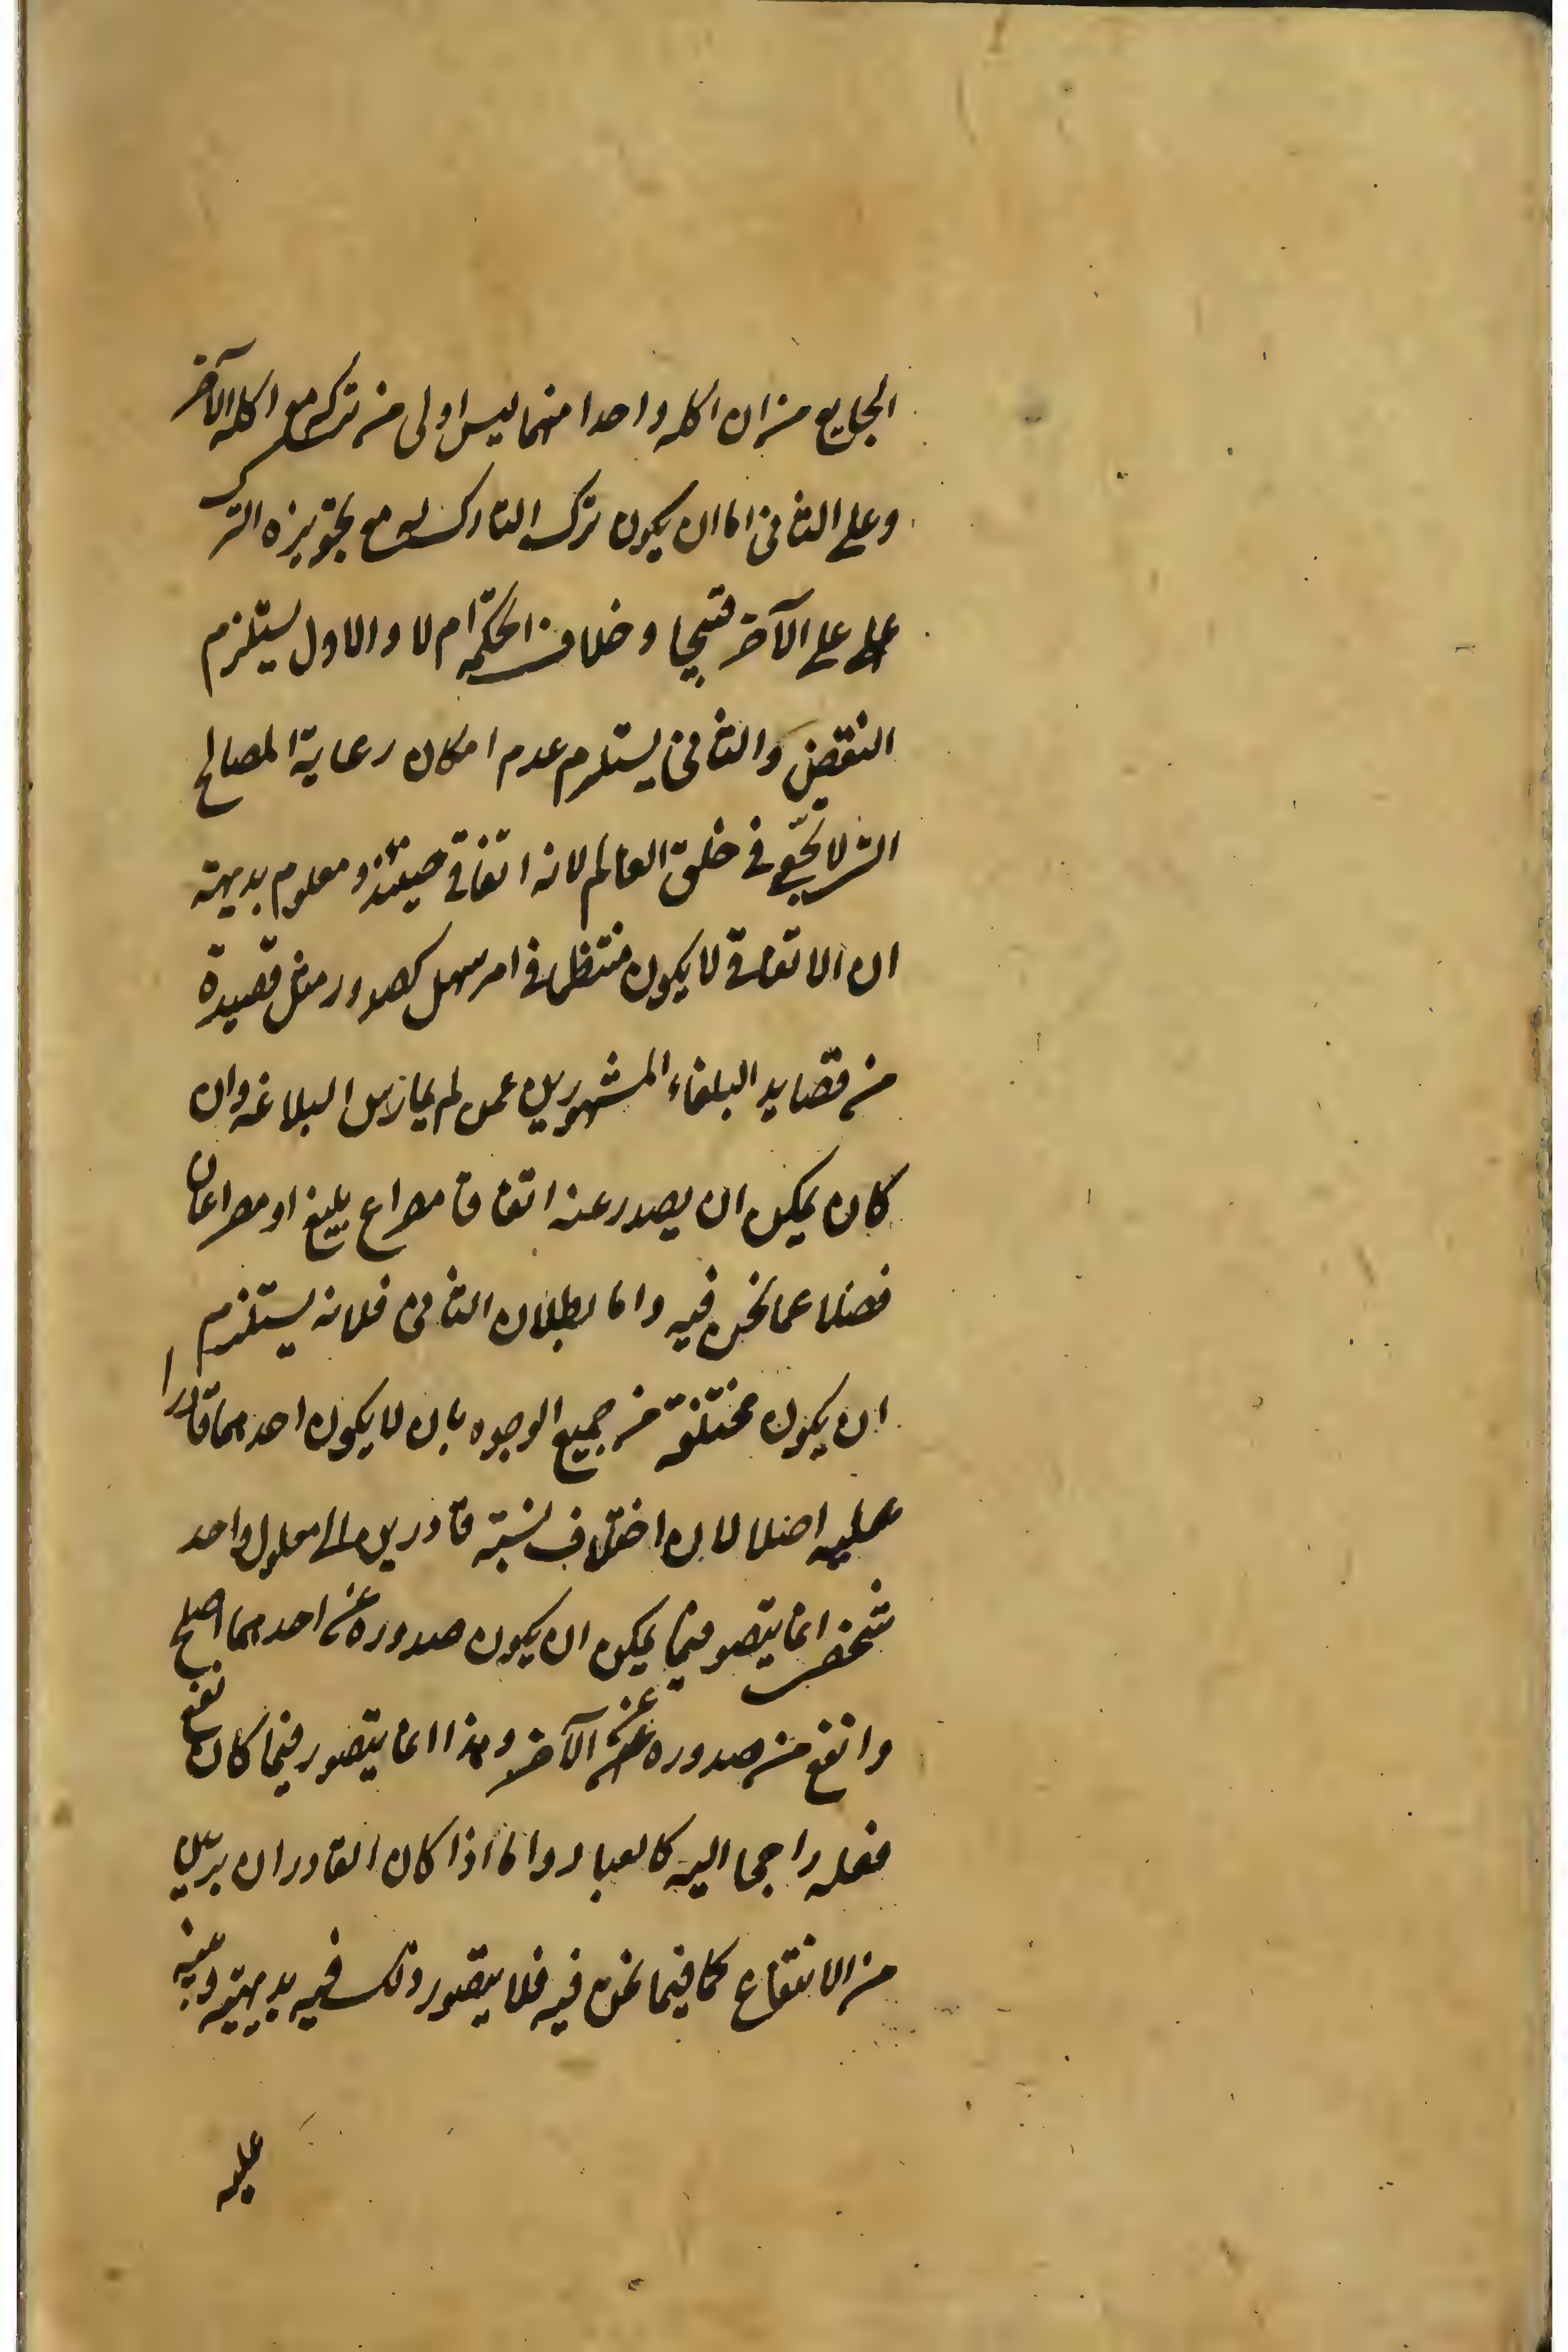 الجايع من ان اكله واحدا منهما ليس اولى من تركه مع اكله الآخر
وعلى الثانى اما ان يكون ترك التارك له مع تجويزه الترك
على على الآخر قبيحا وخلاف الحكمة ام لا والاول يستلزم
النقص والثانى يستلزم عدم امكان رعاية المصالح
التى لا تحصى فى خلق العالم لانه اتفاقى حينئذ ومعلوم بديهة
ان الاتفاقى لا يكون منتظما فى امر سهل كصدور مثل قصيدة
من قصايد البلغاء المشهورين عمن لم يمارس البلاغه وان
كان يمكن ان يصدر عنه اتفاقا مصراع بليغ او مصراعان
فضلا عما نحن فيه واما بطلان الثانى فلانه يستلزم
ان يكون مختلفة من جميع الوجوه بان لا يكون احدهما قادرا
عليه اصلا لان اختلاف نسبة قادرين الى معلول واحد
شخصى انما يتصور فيما يمكن ان يكون صدوره عن احدهما اصلح
وانفع من صدوره عن الآخر وهذا انما يتصور فيما كان نفع
فعله راجعا اليه كالعباد واما اذا كان القادران بريين
من الانتفاع كما فيما نحن فيه فلا يتصور ذلك فيه بديهة وينبه
عليه